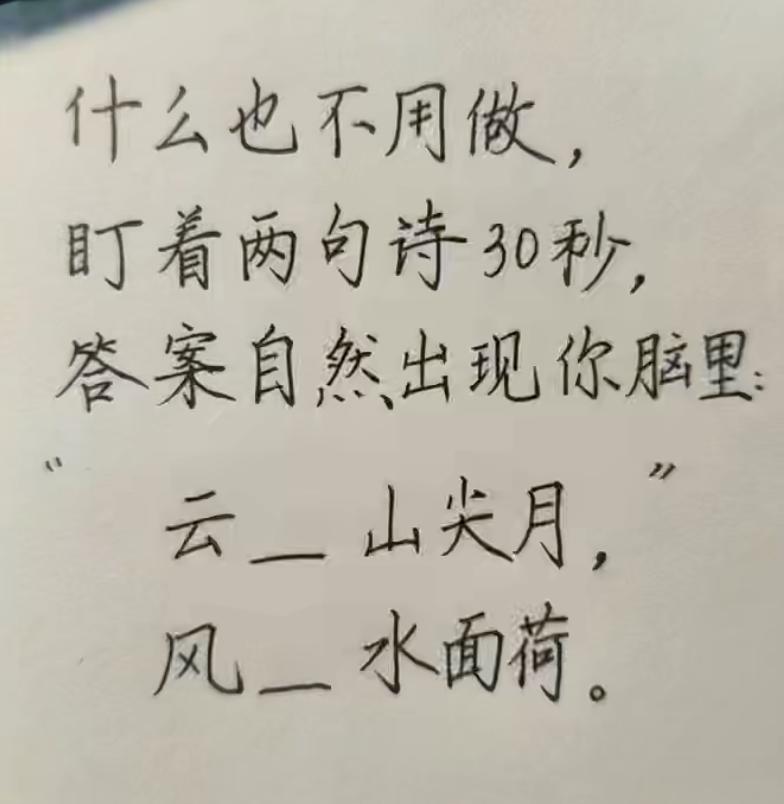 什么也不用做,
盯着两句诗30秒,
答案自然出现你脑里:
“云__山尖月,”
风__水面荷。